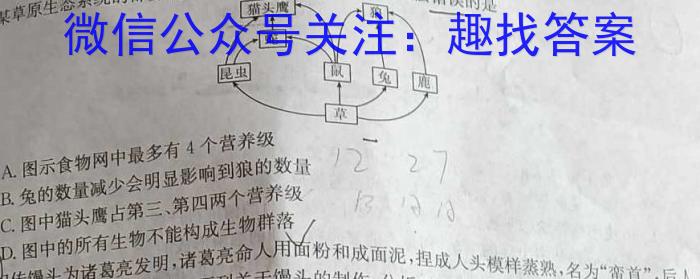 某草原生态系统的
错误的是
微信公众号关注：趣找答案
猫头鹰
狼
昆虫
鼠
兔
鹿
草
A. 图示食物网中最多有 4 个营养级
B. 兔的数量减少会明显影响到狼的数量
C. 图中猫头鹰占第三、第四两个营养级
D. 图中的所有生物不能构成生物群落
传馒头为诸葛亮发明,诸葛亮命人用面粉和成面泥,捏成人头模样蒸熟,名为“蛮首”,后人
12 27